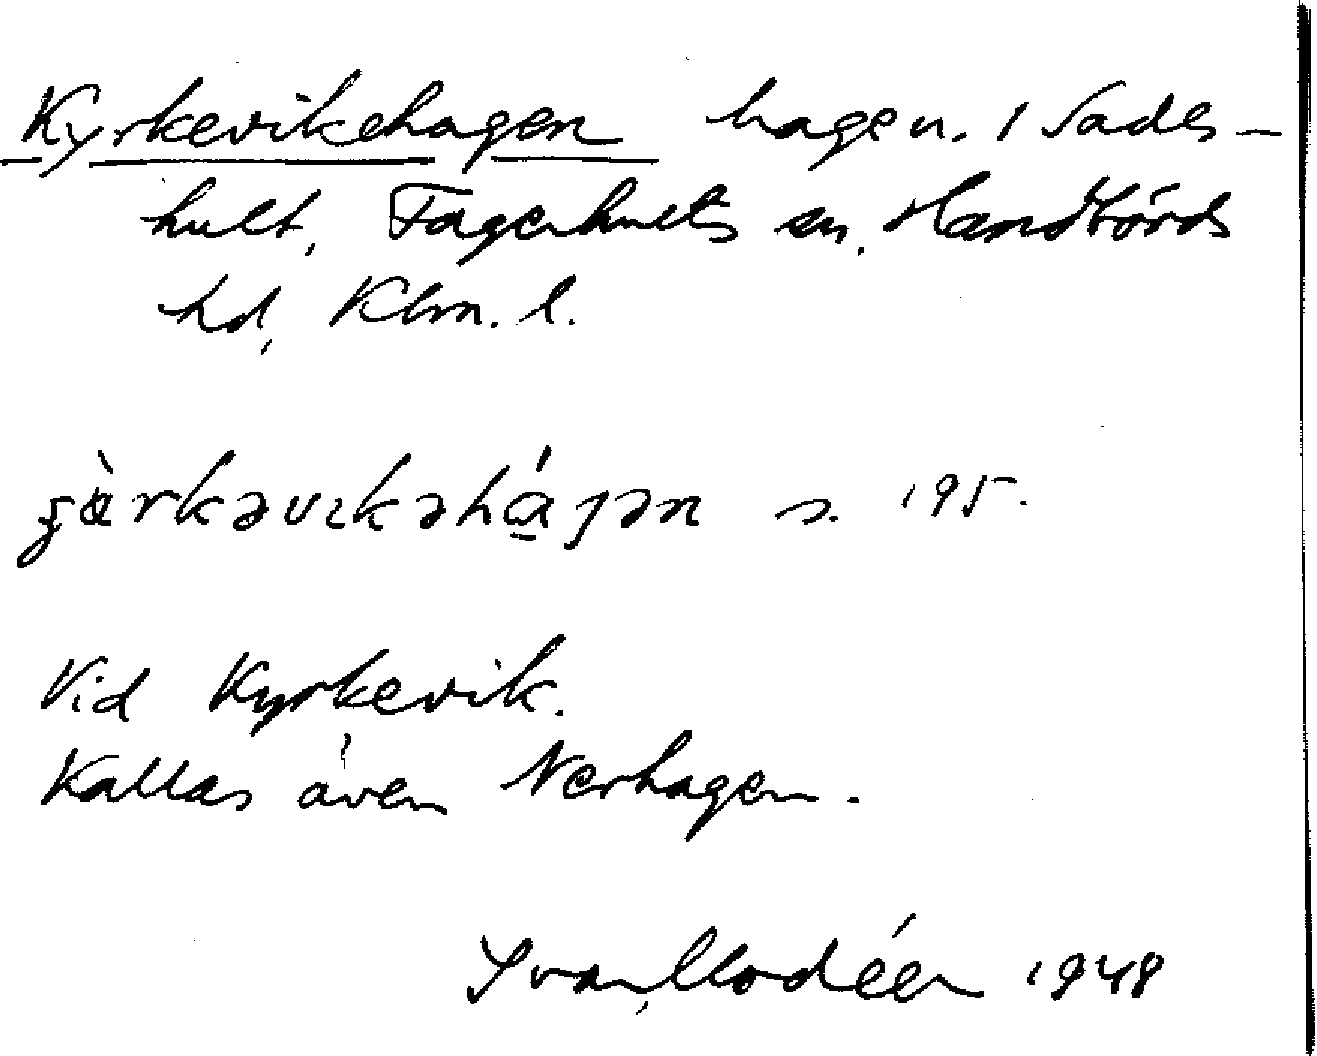 Kyrkevikehagen hagen. 1 Sades-
hult, Fagerhults sn, Handbörds
hd, Klm. l.
s. 195.
Vid Kyrkevik.
Kallas även Nerhagen.
Ivar Modéer 1948